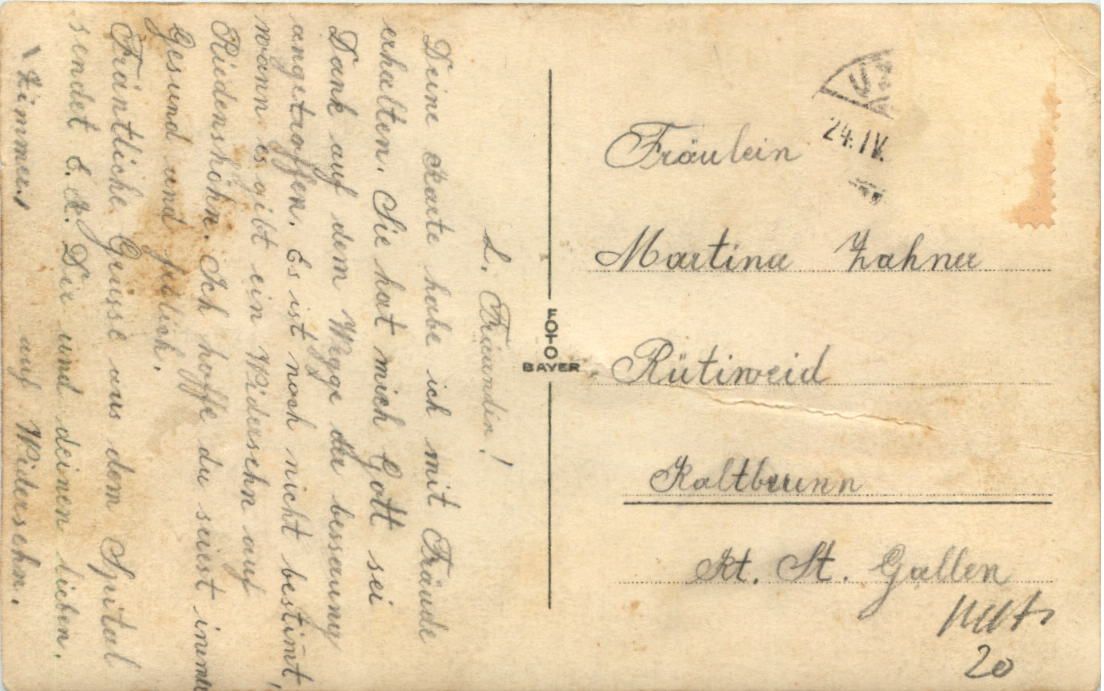 L. Fräundin!
Deine Karte habe ich mit Fräude
erhalten. Sie hat mich Gott sei
Dank auf dem Wegge der bessaung
angetroffen. Es ist noch nicht bestimt,
wann es gibt ein Widersehn auf
Riedenshöhn. Ich hoffe du seiest immer
Gesund und
Fräintliche Grüsse aus dem Spital
sendet E. A. Dir und deinen lieben.
Zimmer, auf Widersehn.
FOTO
BAYER
24. IV.
Fräulein
Martina Zahner
Rütiweid
Kaltbrunn
Kt. St. Gallen
20